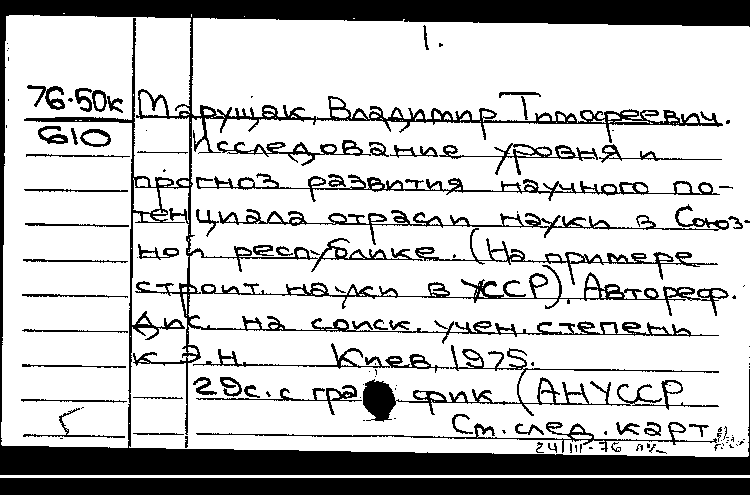 1.
76-50к
610
Марущак, Владимир Тимофеевич.
Исследование уровня и
прогноз развития научного по-
тенциала отрасли науки в Союз-
ной республике. (На примере
строит. науки в УССР). Автореф.
дис. на соиск. учен. степени
к.э.н. Киев, 1975.
29с. с график. (АН УССР.
См. след. карт.
24/III-76